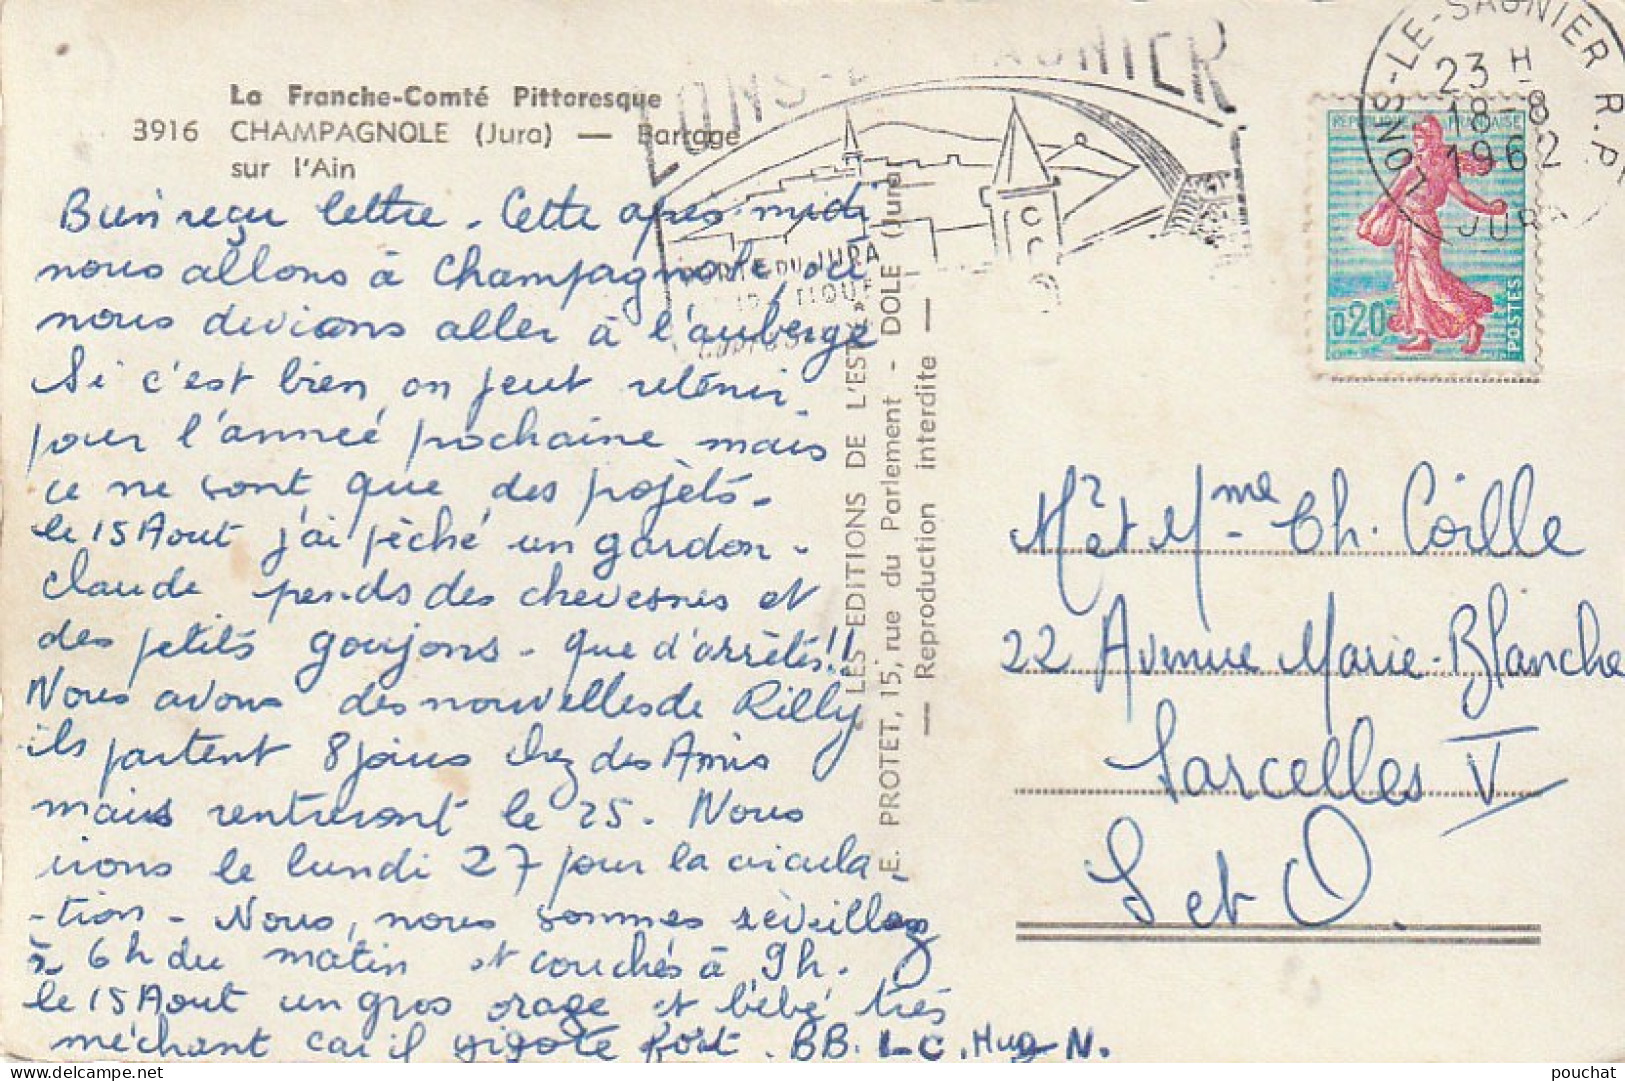 La Franche-Comté Pittoresque
3916 CHAMPAGNOLE (Jura) — Barrage
sur l'Ain
Bien reçu lettre. Cette après-midi
nous allons à Champagnole, où
nous devions aller à l'auberge
Si c'est bien on peut retenir
pour l'année prochaine mais
ce ne sont que des projets.
le 15 Aout j'ai pèché un gardon.
Claude pends des chevesnes et
des petits goujons. que d'arrêtés!!
Nous avons des nouvelles de Rilly
ils partent 8 jours chez des Amis
mais rentreront le 25. Nous
irons le lundi 27 pour la circula-
-tion. Nous, nous sommes réveillés
à 6h du matin et couchés à 9h.
le 15 Aout un gros orage et bébé très
méchant car il gigote fort. BB. L-C.
LONS-LE-SAUNIER
PORTE DU JURA
TOURISTIQUE
E. PROTET, 15, rue du Parlement - DOLE (Jura)
LES EDITIONS DE L'EST
— Reproduction interdite —
LONS-LE-SAUNIER R.P.
23 H
18-8
1962
JURA
REPUBLIQUE FRANÇAISE
0,20
POSTES
Mr et Mme Ch. Coille
22 Avenue Marie-Blanche
Sarcelles V
S et O.
pouchat